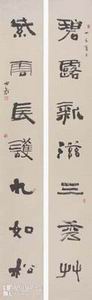 碧露新滋三秀艸
紫雲長護九如松